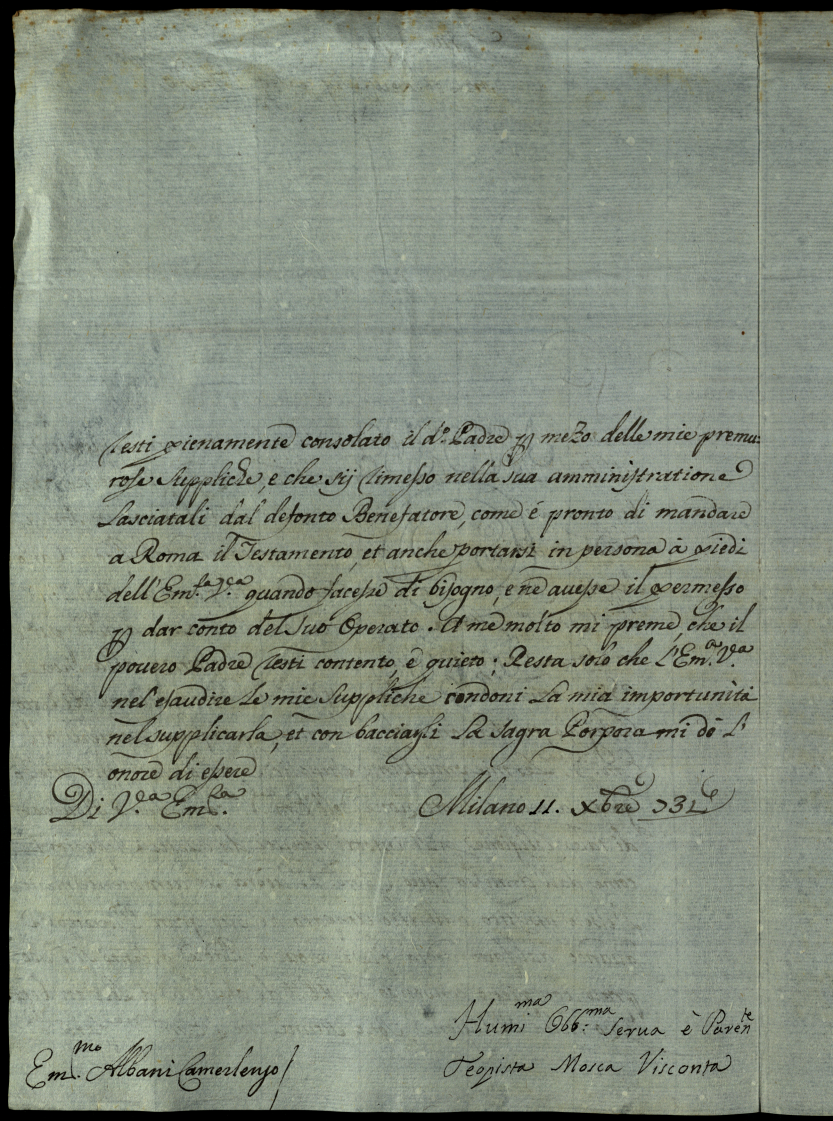 resti pienamente consolato il d.º Padre p mezo delle mie premu:
rose suppliche, e che sij rimesso nella sua amministratione
lasciatali dal defonto Benefatore, come é pronto di mandare
a Roma il Testamento, et anche portarsi in persona à piedi
dell'Em.za V.ra quando facesse di bisogno, e ne avesse il permesso
p dar conto del suo Operato. A me molto mi preme, che il
povero Padre resti contento, e quieto; Resta solo che l'Em.a V.a
nel esaudire le mie suppliche condoni la mia importunità
nel supplicarla, et con bacciargli la sagra Porpora mi dò l'
onore di essere
Di V.ra Em.za
Milano 11. Xbre 731
Humi.ma Obb:ma serva è Paren.te
Teopista Mosca Visconta
Em.mo Albani Camerlengo